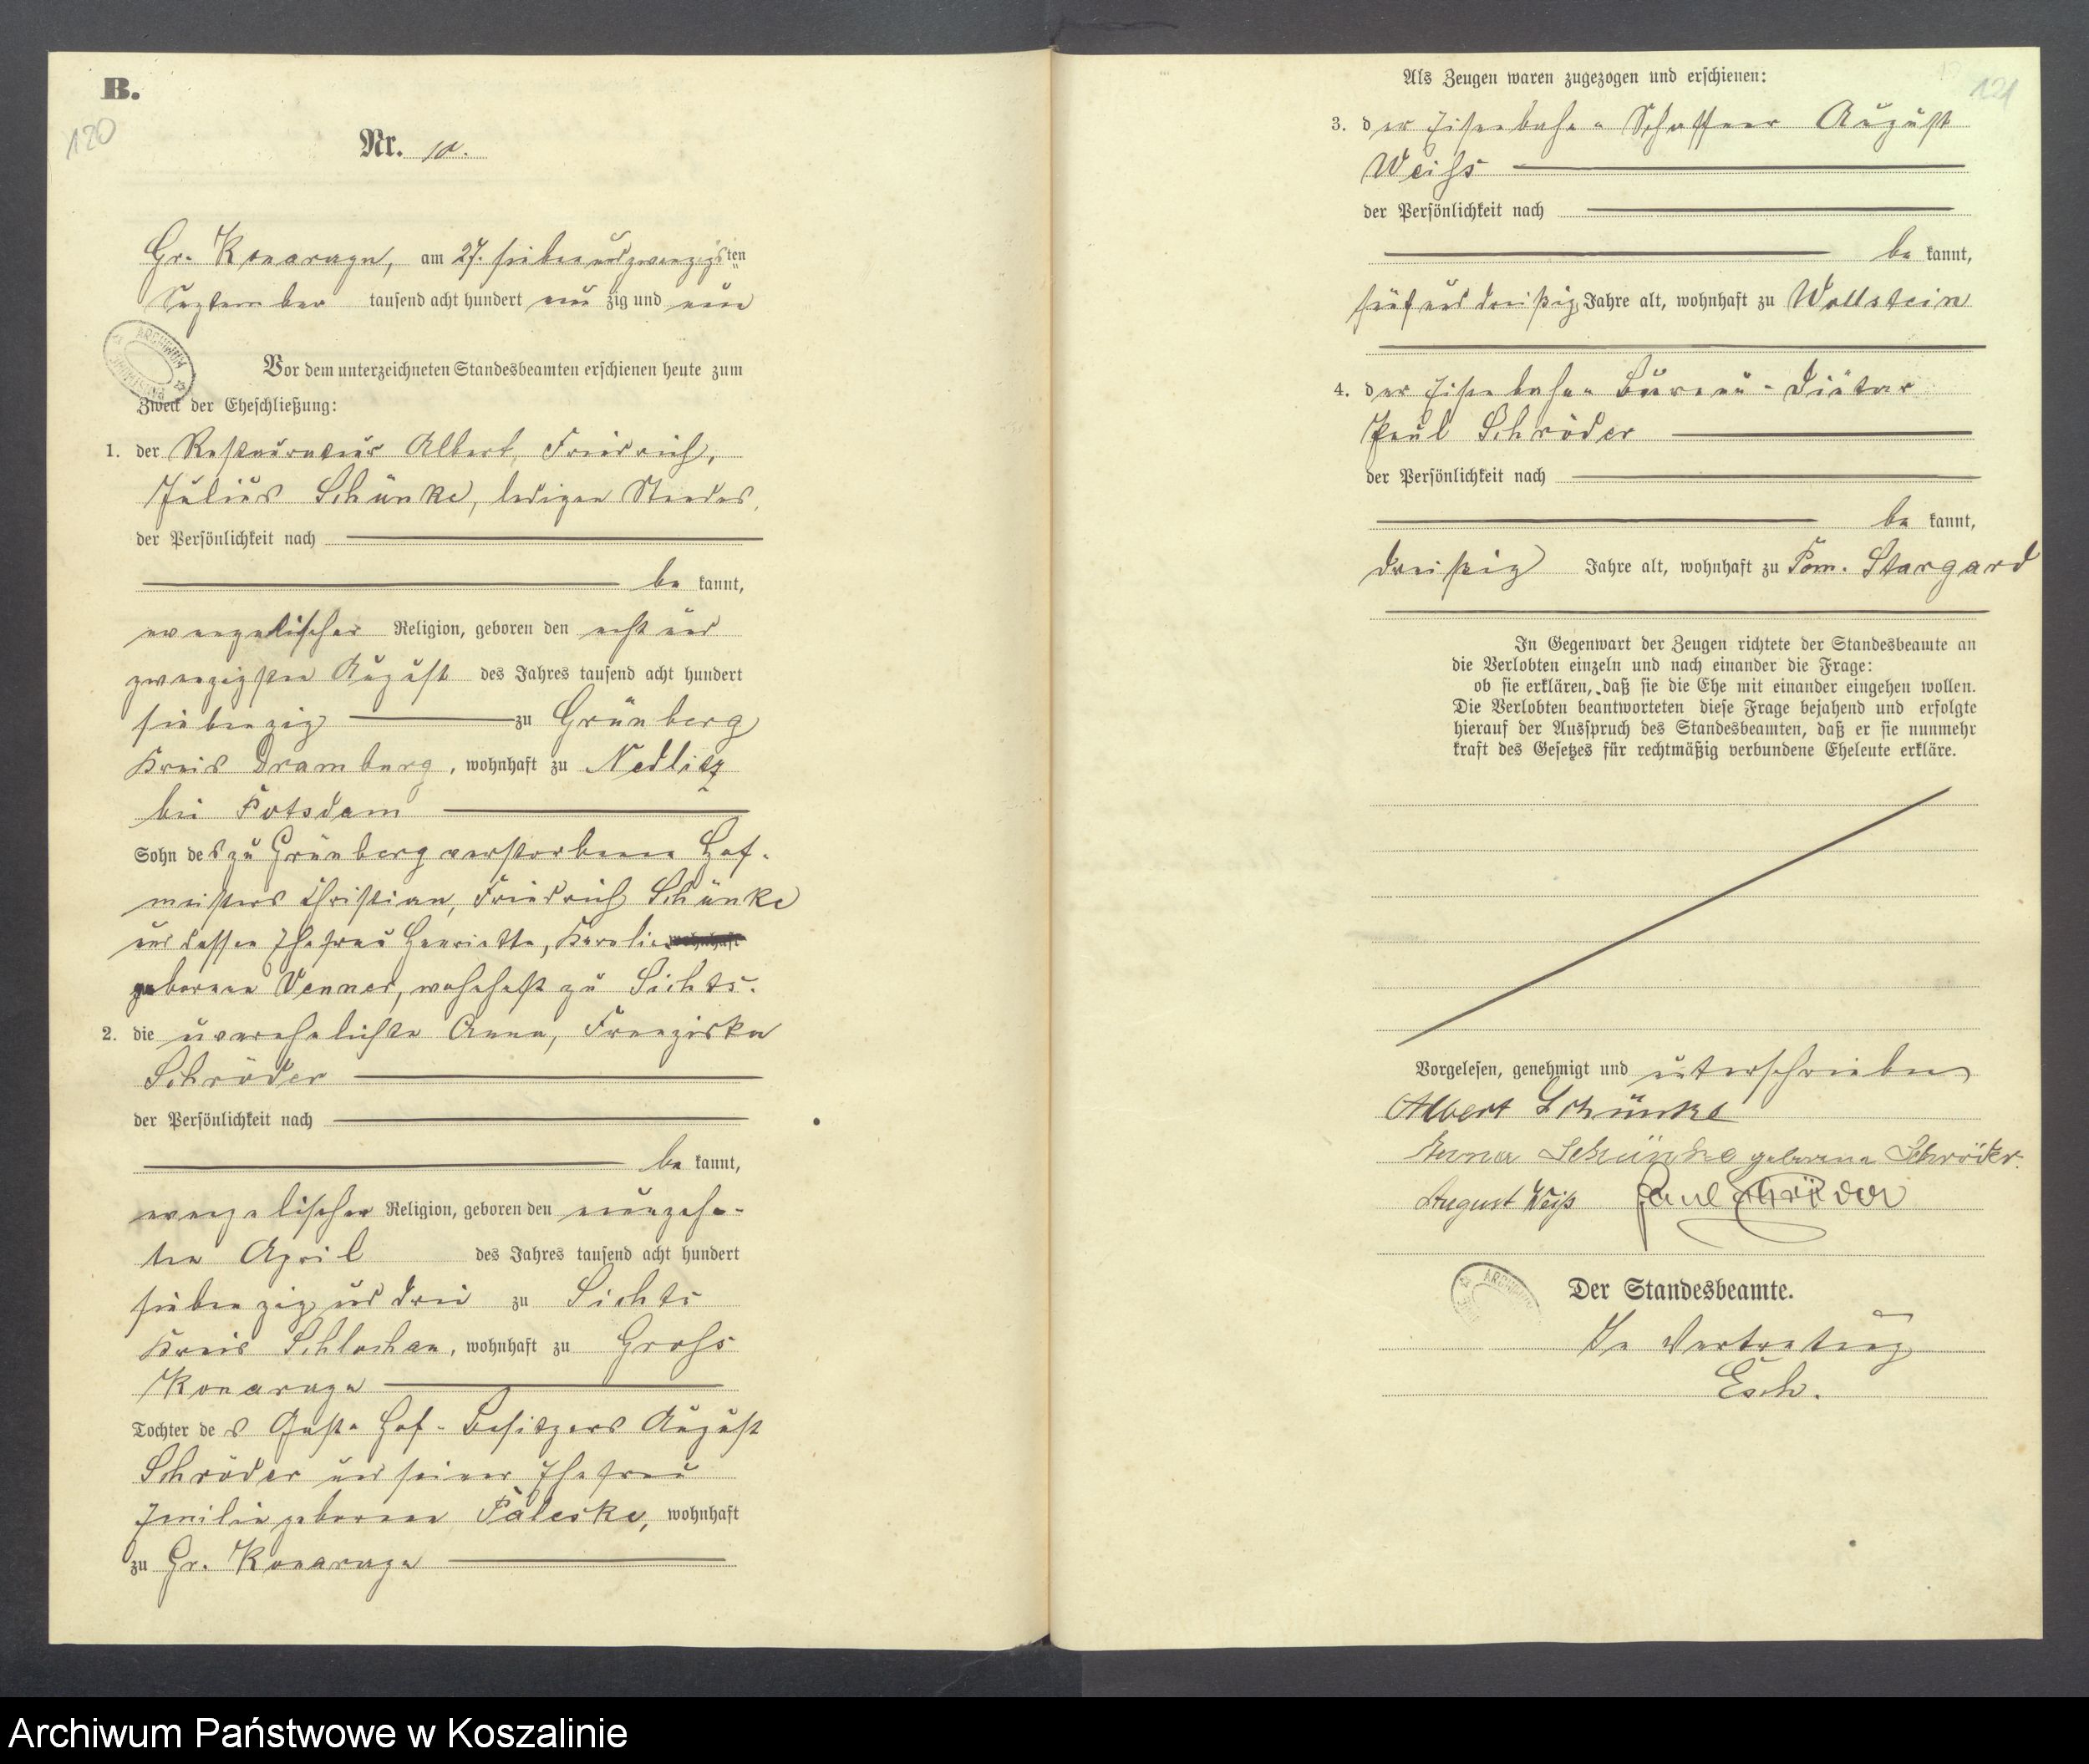 B.
120
Nr. 10.
Gr. Konarazyn, am 27. siebenundzwanzigsten
September tausend acht hundert neunzig und neun
Vor dem unterzeichneten Standesbeamten erschienen heute zum
Zweck der Eheschließung:
1. der Restaurateur Albert, Friedrich,
Julius Schünke, ledigen Standes,
der Persönlichkeit nach
be kannt,
evangelischer Religion, geboren den acht und
zwanzigsten August des Jahres tausend acht hundert
siebenzig zu Grünberg
Kreis Dramburg, wohnhaft zu Nedlitz
bei Potsdam
Sohn des zu Grünberg verstorbenen Hof-
meisters Christian, Friedrich Schünke
und dessen Ehefrau Henriette, Karoline
geborenen Venner, wohnhaft zu Sichts.
2. die unverehelichte Anna, Franziska
Schröder
der Persönlichkeit nach
be kannt,
evangelischer Religion, geboren den neunzehn-
ten April des Jahres tausend acht hundert
siebenzig und drei zu Sichts
Kreis Schlochau, wohnhaft zu Groß
Konarzyn
Tochter des Gast-Hof-Besitzers August
Schröder und seiner Ehefrau
Emilie geborenen Paleske, wohnhaft
zu Gr. Konarzyn
121
Als Zeugen waren zugezogen und erschienen:
3. der Eisenbahn-Schaffner August
Weihs
der Persönlichkeit nach
be kannt,
fünfunddreißig Jahre alt, wohnhaft zu Wollstein
4. der Eisenbahn Büreau-Diätar
Paul Schröder
der Persönlichkeit nach
be kannt,
dreißig Jahre alt, wohnhaft zu Pom. Stargard
In Gegenwart der Zeugen richtete der Standesbeamte an
die Verlobten einzeln und nach einander die Frage:
ob sie erklären, daß sie die Ehe mit einander eingehen wollen.
Die Verlobten beantworteten diese Frage bejahend und erfolgte
hierauf der Ausspruch des Standesbeamten, daß er sie nunmehr
kraft des Gesetzes für rechtmäßig verbundene Eheleute erkläre.
Vorgelesen, genehmigt und unterschrieben
Albert Schünke
Anna Schünke geborene Schröder.
August Weiß Paul Schröder
Der Standesbeamte.
In Vertretung
Esch.
Archiwum Państwowe w Koszalinie